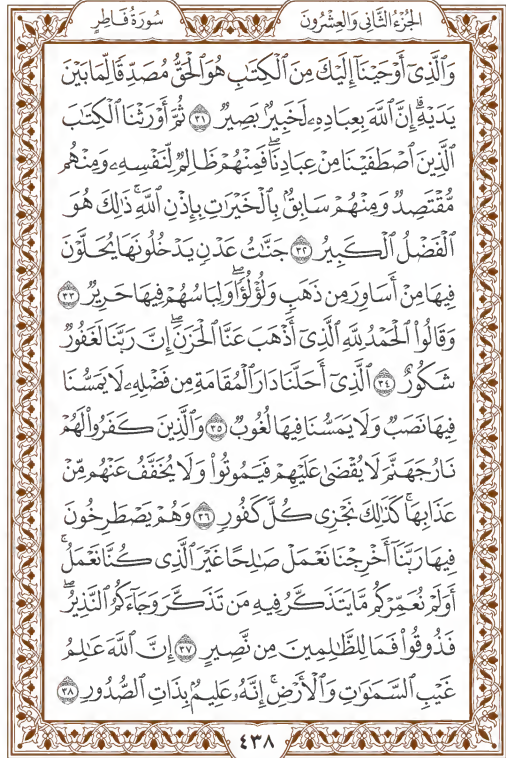 الجُزْءُ الثَّانِي وَالعِشْرُونَ
سُورَةُ فَاطِرٍ
وَالَّذِىٓ أَوْحَيْنَآ إِلَيْكَ مِنَ الْكِتَٰبِ هُوَ الْحَقُّ مُصَدِّقًا لِّمَا بَيْنَ
يَدَيْهِ ۗ إِنَّ اللَّهَ بِعِبَادِهِۦ لَخَبِيرٌۢ بَصِيرٌ ٣١ ثُمَّ أَوْرَثْنَا الْكِتَٰبَ
الَّذِينَ اصْطَفَيْنَا مِنْ عِبَادِنَا ۖ فَمِنْهُمْ ظَالِمٌ لِّنَفْسِهِۦ وَمِنْهُم
مُّقْتَصِدٌ وَمِنْهُمْ سَابِقٌۢ بِالْخَيْرَٰتِ بِإِذْنِ اللَّهِ ۚ ذَٰلِكَ هُوَ
الْفَضْلُ الْكَبِيرُ ٣٢ جَنَّٰتُ عَدْنٍ يَدْخُلُونَهَا يُحَلَّوْنَ
فِيهَا مِنْ أَسَاوِرَ مِن ذَهَبٍ وَلُؤْلُؤًا ۖ وَلِبَاسُهُمْ فِيهَا حَرِيرٌ ٣٣
وَقَالُوا۟ الْحَمْدُ لِلَّهِ الَّذِىٓ أَذْهَبَ عَنَّا الْحَزَنَ ۖ إِنَّ رَبَّنَا لَغَفُورٌ
شَكُورٌ ٣٤ الَّذِىٓ أَحَلَّنَا دَارَ الْمُقَامَةِ مِن فَضْلِهِۦ لَا يَمَسُّنَا
فِيهَا نَصَبٌ وَلَا يَمَسُّنَا فِيهَا لُغُوبٌ ٣٥ وَالَّذِينَ كَفَرُوا۟ لَهُمْ
نَارُ جَهَنَّمَ لَا يُقْضَىٰ عَلَيْهِمْ فَيَمُوتُوا۟ وَلَا يُخَفَّفُ عَنْهُم مِّنْ
عَذَابِهَا ۚ كَذَٰلِكَ نَجْزِى كُلَّ كَفُورٍ ٣٦ وَهُمْ يَصْطَرِخُونَ
فِيهَا رَبَّنَآ أَخْرِجْنَا نَعْمَلْ صَٰلِحًا غَيْرَ الَّذِى كُنَّا نَعْمَلُ ۚ
أَوَلَمْ نُعَمِّرْكُم مَّا يَتَذَكَّرُ فِيهِ مَن تَذَكَّرَ وَجَآءَكُمُ النَّذِيرُ ۖ
فَذُوقُوا۟ فَمَا لِلظَّٰلِمِينَ مِن نَّصِيرٍ ٣٧ إِنَّ اللَّهَ عَٰلِمُ
غَيْبِ السَّمَٰوَٰتِ وَالْأَرْضِ ۚ إِنَّهُۥ عَلِيمٌۢ بِذَاتِ الصُّدُورِ ٣٨
٤٣٨